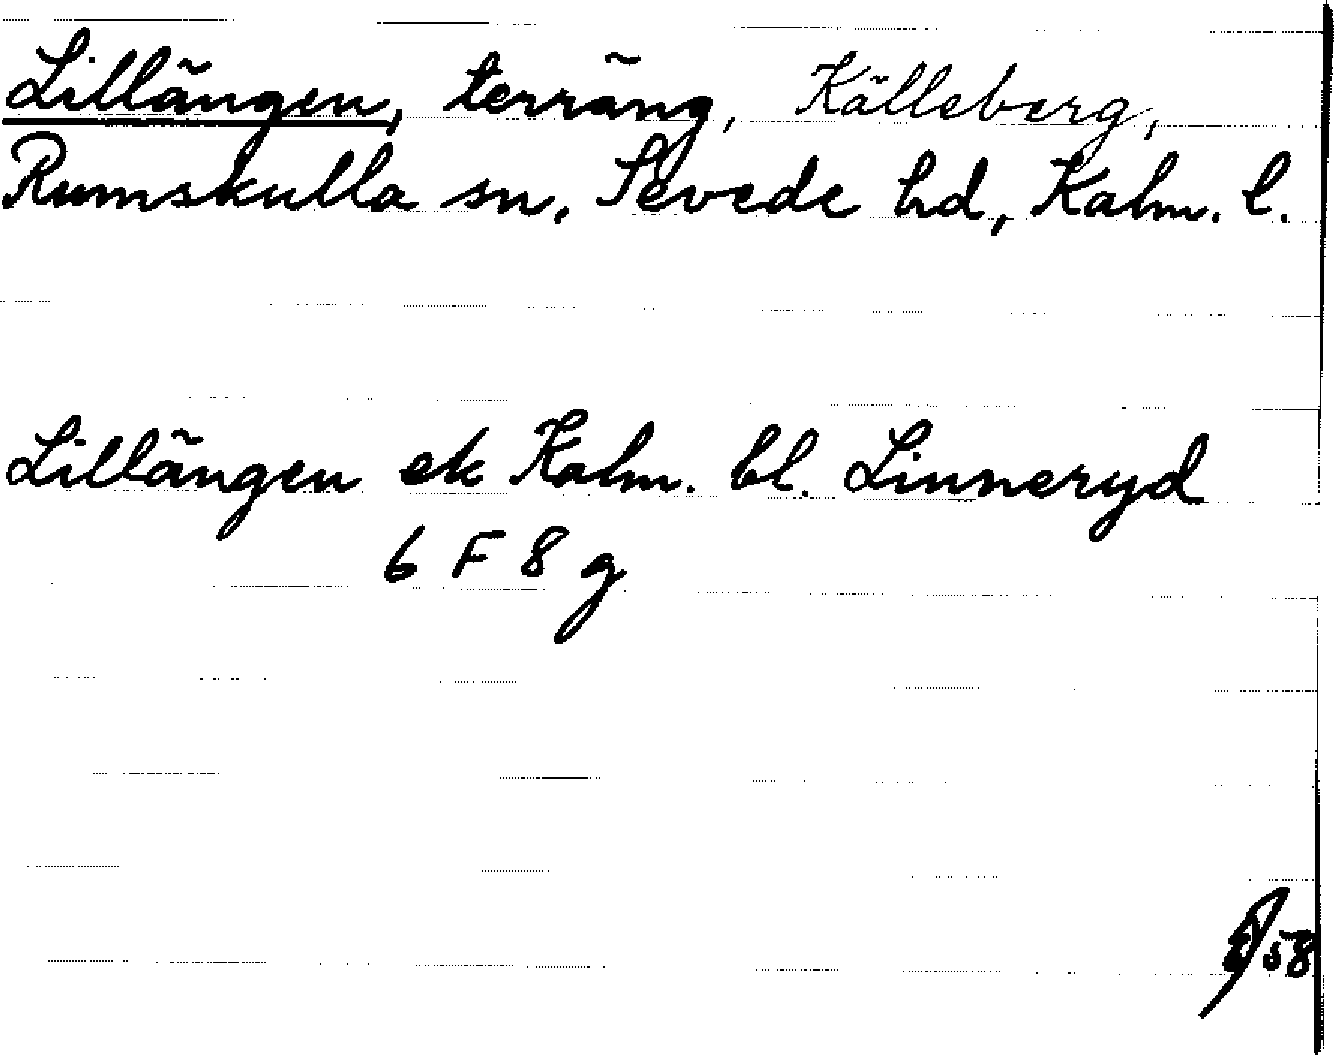 Lillängen, terräng, Källeberg,
Rumskulla sn, Sevede hd, Kalm. l.
Lillängen ek Kalm. bl. Linneryd
6 F 8 g
58